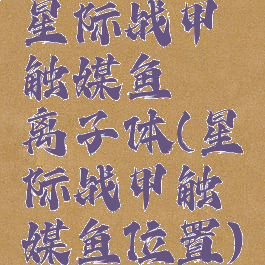 星际战甲
触媒鱼
离子体(星
际战甲触
媒鱼位置)